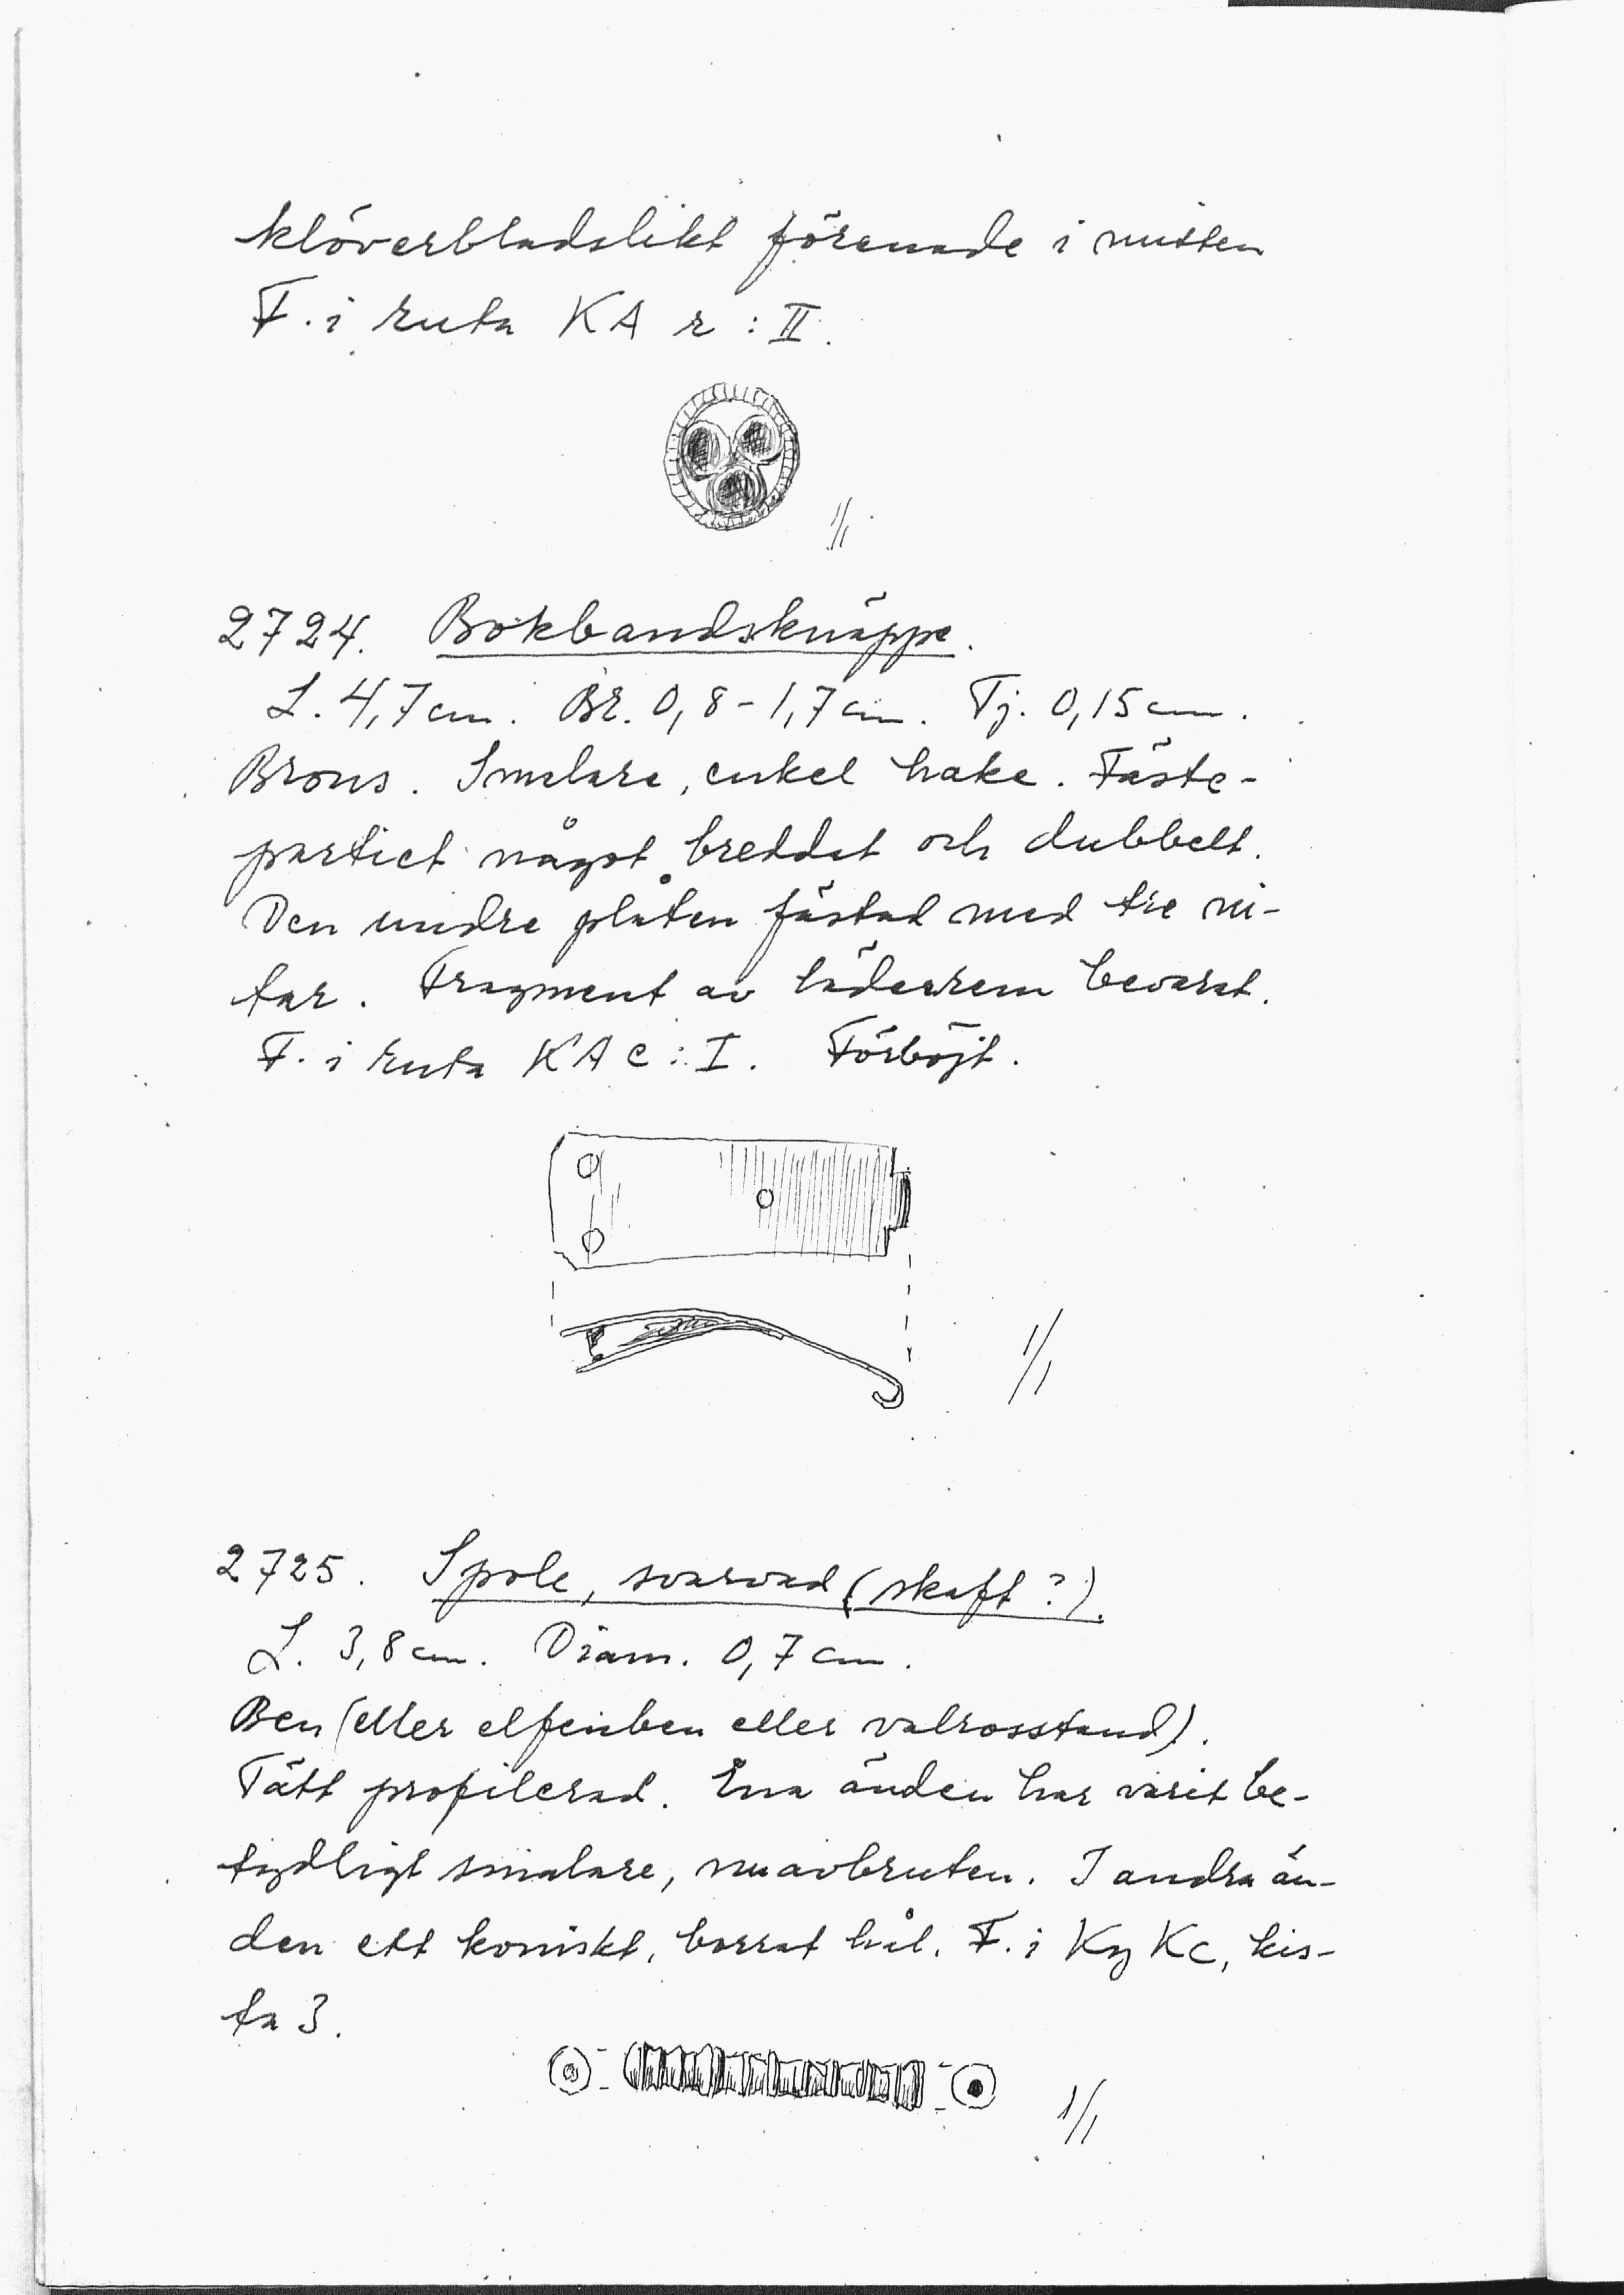 klöverbladslikt förenade i mitten
F. i ruta KA r : II.
1/1
2724. Bokbandsknäppe.
L. 4,7 cm. Br. 0,8 - 1,7 cm. Tj. 0,15 cm.
Brons. Smalare, enkel hake. Fäste-
partiet något breddat och dubbelt.
Den undre plåten fästad med tre ni-
tar. Fragment av läderrem bevarat.
F. i ruta KA c : I. Förböjt.
1/1
2725. Spole, svarvad (skaft?).
L. 3,8 cm. Diam. 0,7 cm.
Ben (eller elfenben eller valrosstand).
Tätt profilerad. Ena änden har varit be-
tydligt smalare, nu avbruten. I andra än-
den ett koniskt, borrat hål. F. i Kg Kc, kis-
ta 3.
1/1